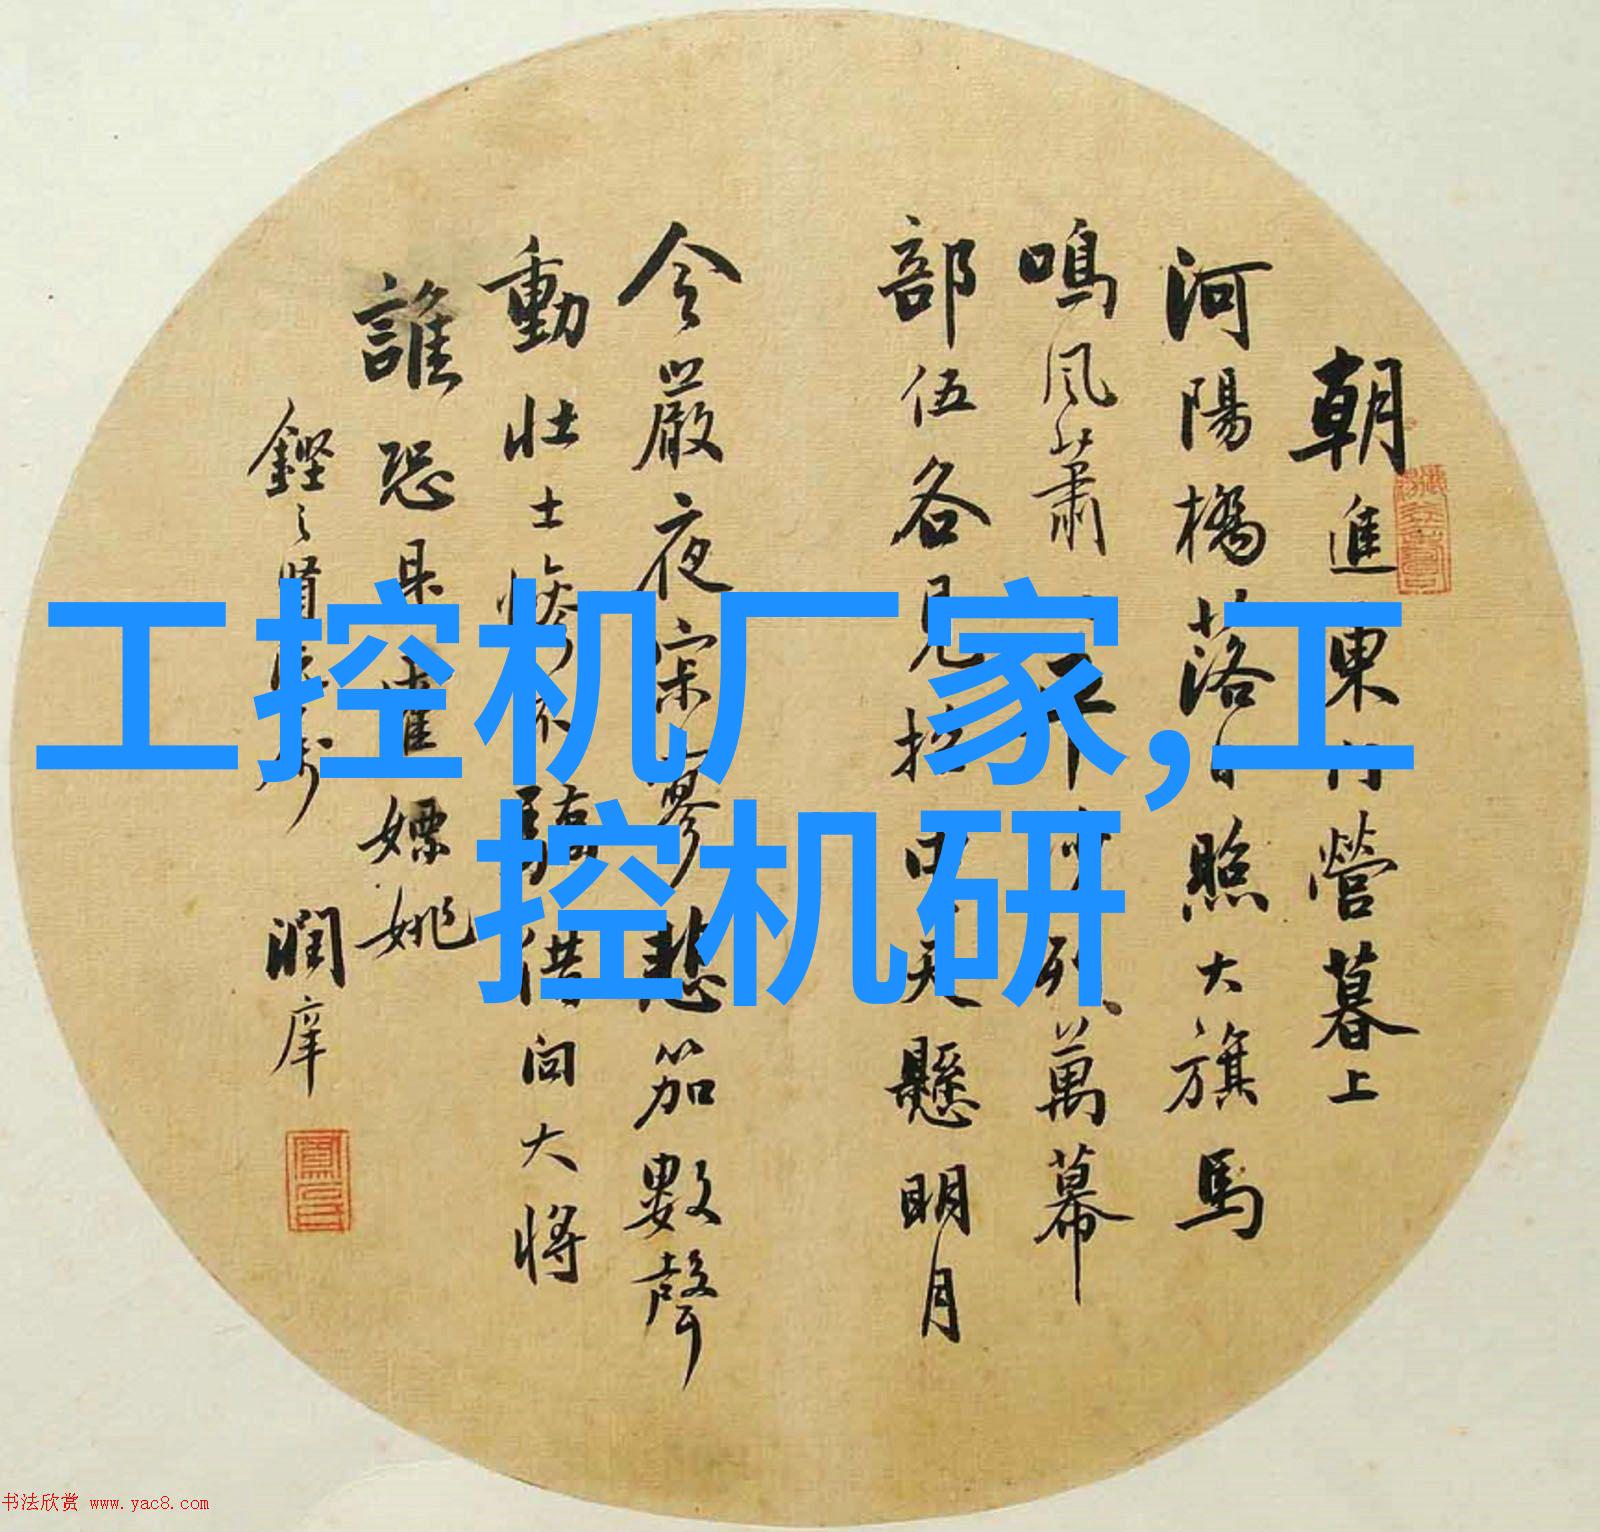 工控机厂家,工
控机研
朝進東門營暮上
河陽橋落日照大旗馬
鳴風蕭平沙列萬幕
部伍各見招中天懸明月
令嚴夜寂寥悲笳數聲
動壯士慘不驕借問大將
誰恐是霍嫖姚
潤庠
书法欣赏 www.yac8.com